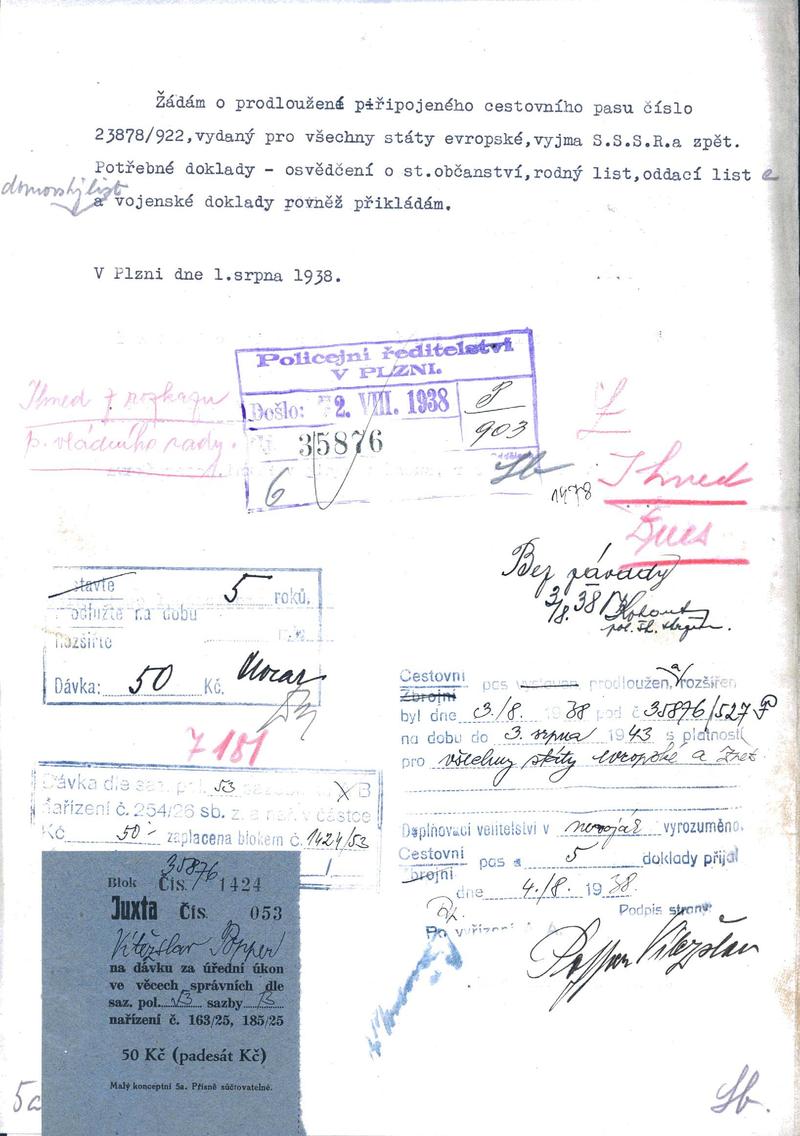 Žádám o prodloužené připojeného cestovního pasu číslo
23878/922,vydaný pro všechny státy evropské,vyjma S.S.S.R.a zpět.
Potřebné doklady - osvědčení o st.občanství,rodný list,oddací list
domovský list
a vojenské doklady rovněž přikládám.
V Plzni dne 1.srpna 1938.
Policejní ředitelství
V PLZNI.
Došlo: 2. VIII. 1938
35876
6
P
903
Ihned z rozkazu
p. vládního rady.
Ihned
Dnes
1478
Bez závady
3/8. 38 Kohout
stavte
5 roků.
Prodlužte na dobu
Rozšiřte
Dávka: 50 Kč.
7 151
Dávka dle saz. pol. 53 sazby B
nařízení č. 254/26 sb. z. a nař. v částce
Kč 50.- zaplacena blokem č. 1424/53
35876
Blok Čís. 1424
Juxta Čís. 053
Vítězslav Popper
na dávku za úřední úkon
ve věcech správních dle
saz. pol. 53 sazby B
nařízení č. 163/25, 185/25
50 Kč (padesát Kč)
Malý konceptní 5a. Přísně súčtovatelné.
5a
Cestovní
Zbrojní
pas vystaven, prodloužen, a rozšířen
byl dne 3./8. 1938 pod č 35876/527 P
na dobu do 3. srpna 1943 s platností
pro všechny státy evropské a zpět
Doplňovací velitelství v nevoják vyrozuměno.
Cestovní
Zbrojní
pas a 5 doklady přijal
dne 4./8. 1938.
Podpis strany
Po vyřízení
Popper Vítězslav